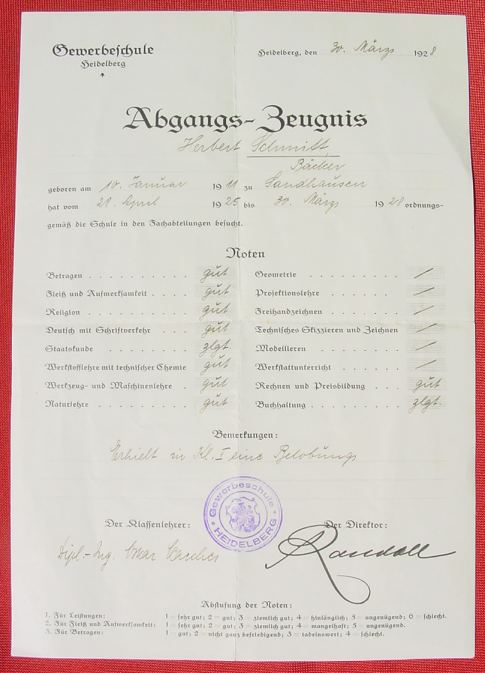 Gewerbeschule
Heidelberg
Heidelberg, den 30. März 1928.
Abgangs-Zeugnis
Herbert Schmitt,
Bäcker
geboren am 10. Januar 1911 zu Sandhausen
hat vom 21. April 1925 bis 30. März 1928 ordnungs-
gemäß die Schule in den Fachabteilungen besucht.
Noten
Betragen . . . . . . . . . . . gut
Fleiß und Aufmerksamkeit . . . . gut
Religion . . . . . . . . . . . gut
Deutsch mit Schriftverkehr . . . gut
Staatskunde . . . . . . . . . zlgt
Werkstofflehre mit technischer Chemie gut
Werkzeug- und Maschinenlehre . gut
Naturlehre . . . . . . . . . . gut
Geometrie . . . . . . . . . . /
Projektionslehre . . . . . . . /
Freihandzeichnen . . . . . . . /
Technisches Skizzieren und Zeichnen /
Modellieren . . . . . . . . . /
Werkstattunterricht . . . . . . /
Rechnen und Preisbildung . . . gut
Buchhaltung . . . . . . . . . zlgt.
Bemerkungen:
Erhielt in Kl. I eine Belobung
Gewerbeschule
HEIDELBERG
Der Klassenlehrer:
Dipl.-Ing.
Der Direktor:
Randoll
Abstufung der Noten:
1. Für Leistungen: 1 = sehr gut; 2 = gut; 3 = ziemlich gut; 4 = hinlänglich; 5 = ungenügend; 6 = schlecht.
2. Für Fleiß und Aufmerksamkeit: 1 = sehr gut; 2 = gut; 3 = ziemlich gut; 4 = mangelhaft; 5 = ungenügend.
3. Für Betragen: 1 = gut; 2 = nicht ganz befriedigend; 3 = tadelnswert; 4 = schlecht.